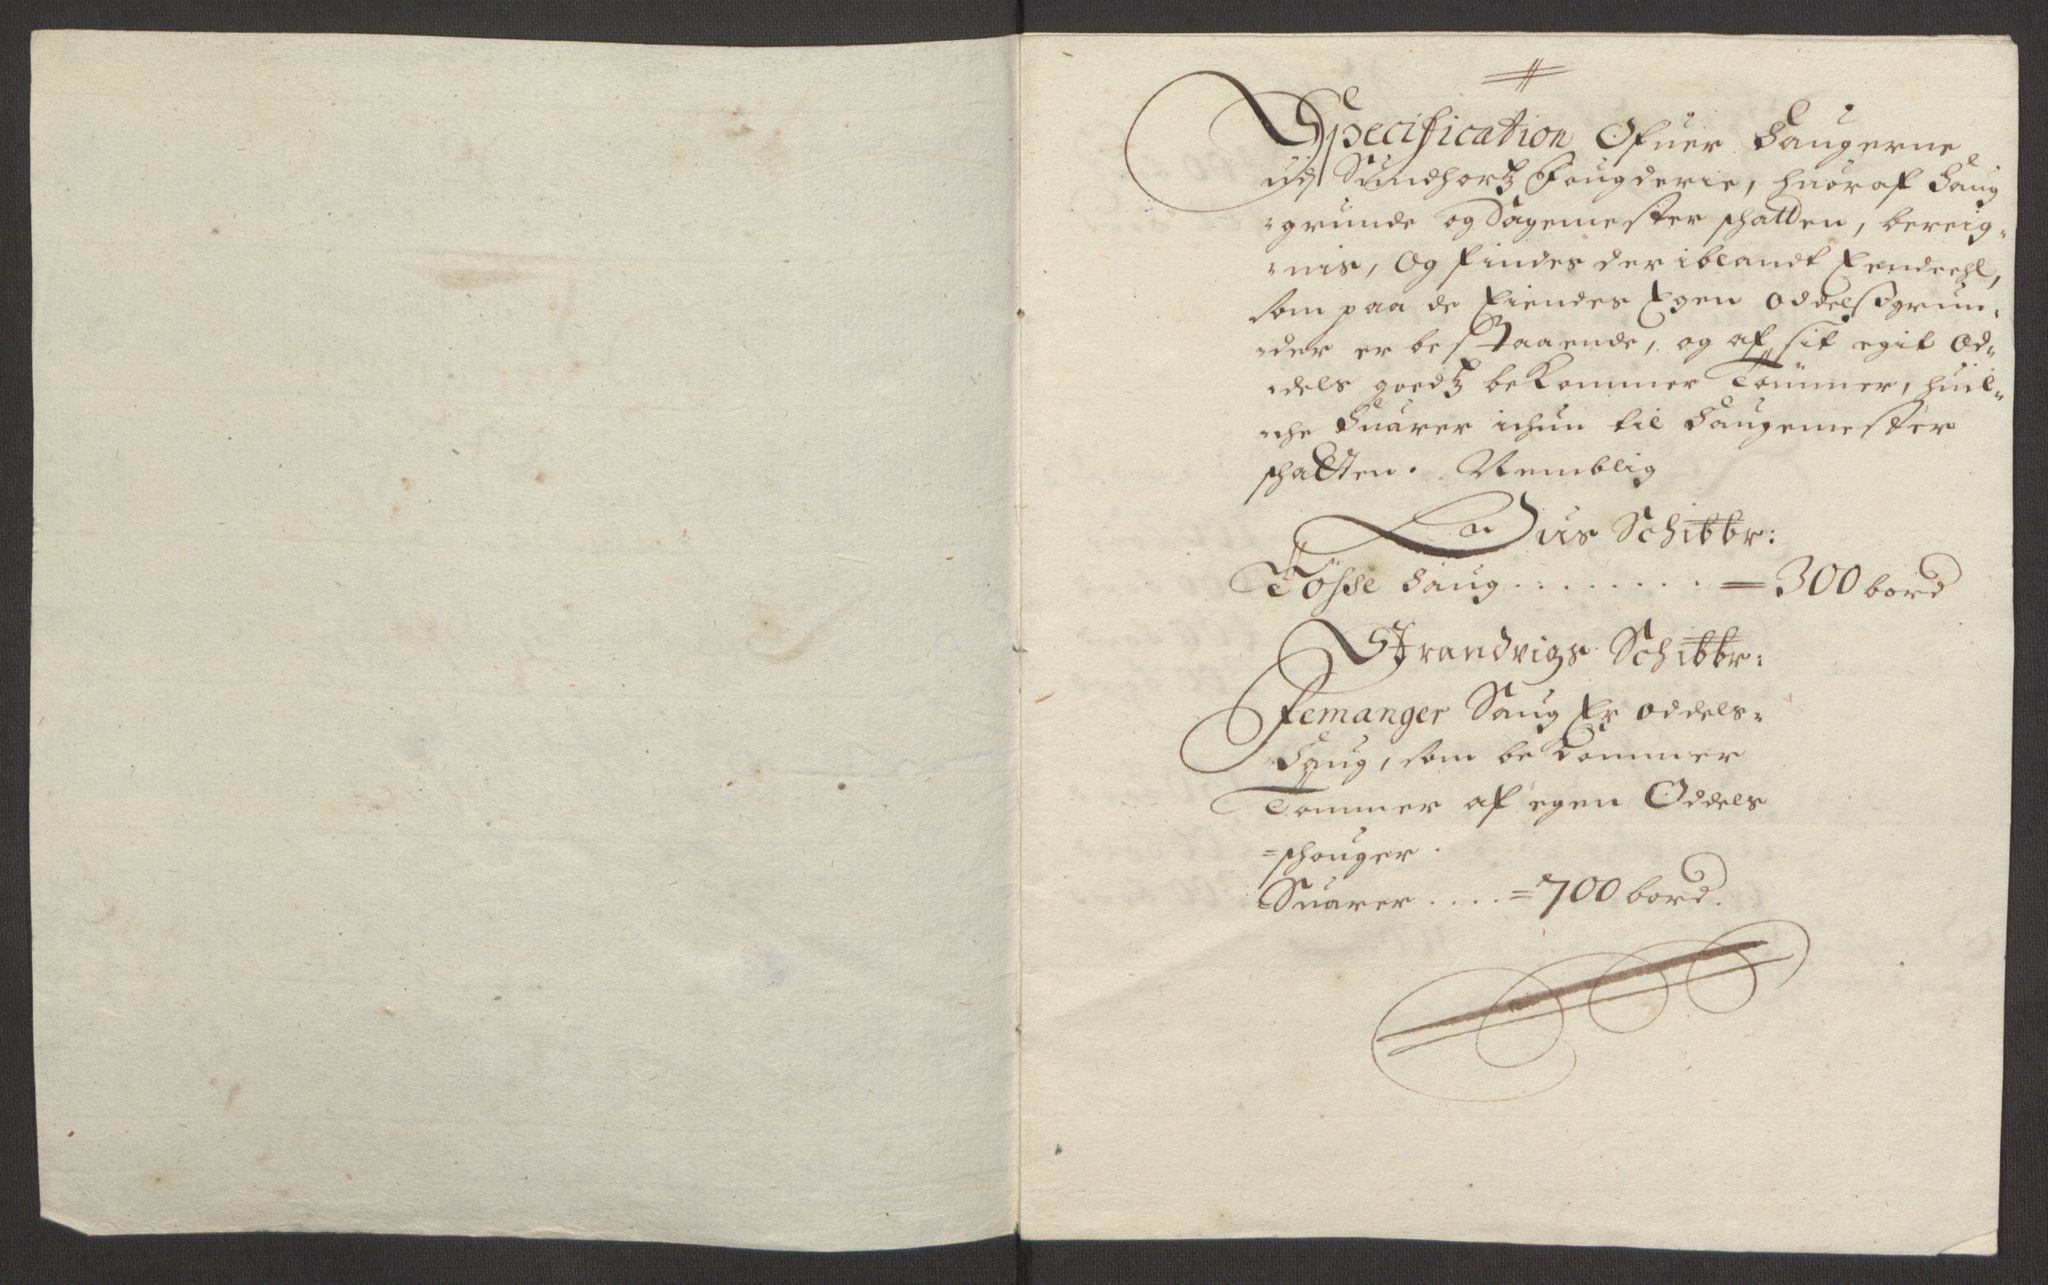 Specification Ofuer Saugerne
udj Sundhortz Fougderie, huoraf Saug
grunde og Sagemester schatten, bereig-
nis, Og findes der iblandt Eendeehl,
som paa de Eiendes Egen Oddelsgrun-
der er bestaaende, og af sit egit Od-
dels goedtz bekommer Tømmer, huil-
che Suarer ichun til Saugemester
schatten. Nemblig
Ous Schibbr:
Tösse Saug . . . . . . . . = 300 bord
Strandvigs Schibbr:
Femanger Saug Er Oddels-
Saug, som bekommer
Tommer af egen Oddels
schouger.
Suarer . . . . = 700 bord.